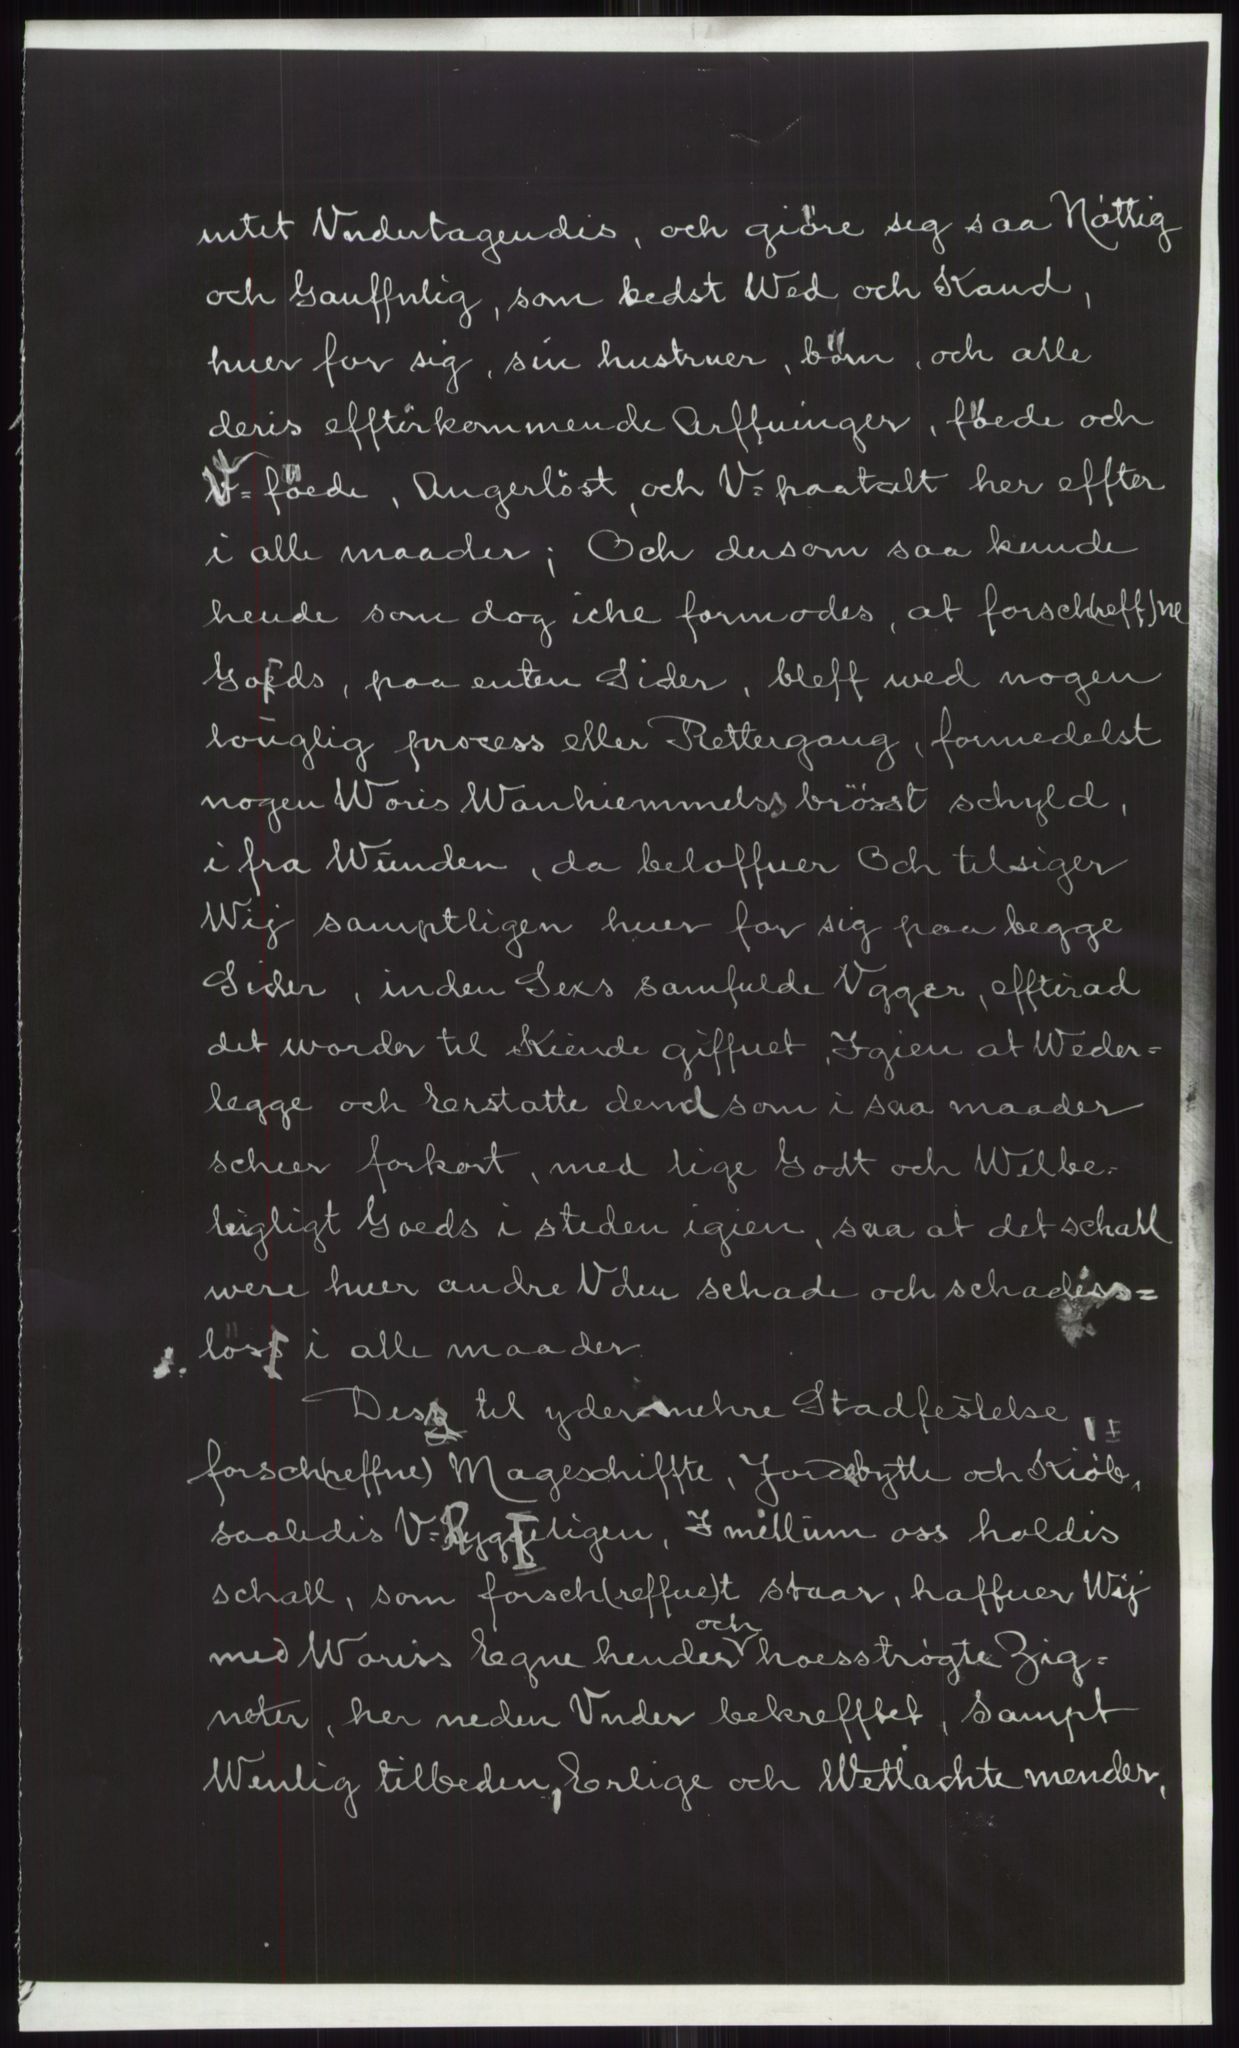 intet Vndertagendis, och giöre seg saa Nöttig
och Gauffnlig, som bedst Wed och Kand,
huer for sig, sin hustruer, börn, och alle
deris efftörkommende Arffuinger, föede och
V=föede, Angerlöst, och V=paatalt her effter
i alle maader; Och dersom saa kunde
hende som dog icke formodes, at forsch(reff)ne
Goeds, paa enten Sider, bleff wed nogen
louglig process eller Rettergang, formedelst
nogen Woris Wanhiemmels brösst schyld,
i fra Wunden, da beloffuer Och tilsiger
Wij samptligen huer for sig paa begge
Sider, inden Sexs samfulde Vgger, efftirad
det worder til Kiende giffuet, Igien at Weder=
legge och Erstatte dend som i saa maader
scheer forkort, med lige Godt och Welbe=
ligligt Goeds i steden igien, saa at det schall
were huer andre Vden schade och schadiss=
löss i alle maader.
Dess til ydermehre Stadfestelse,
forsch(reffne) Mageschiffte, Jordebytte och Kiöb,
saaledis V=Ryggeligen, I millum oss holdis
schall, som forsch(reffne)t staar, haffuer Wij
med Woriss Egne hender och hoesströgte Zig=
neter, her neden Vnder bekrefftet, Sampt
Wenlig tilbeden, Erlige och Wellachte mender,